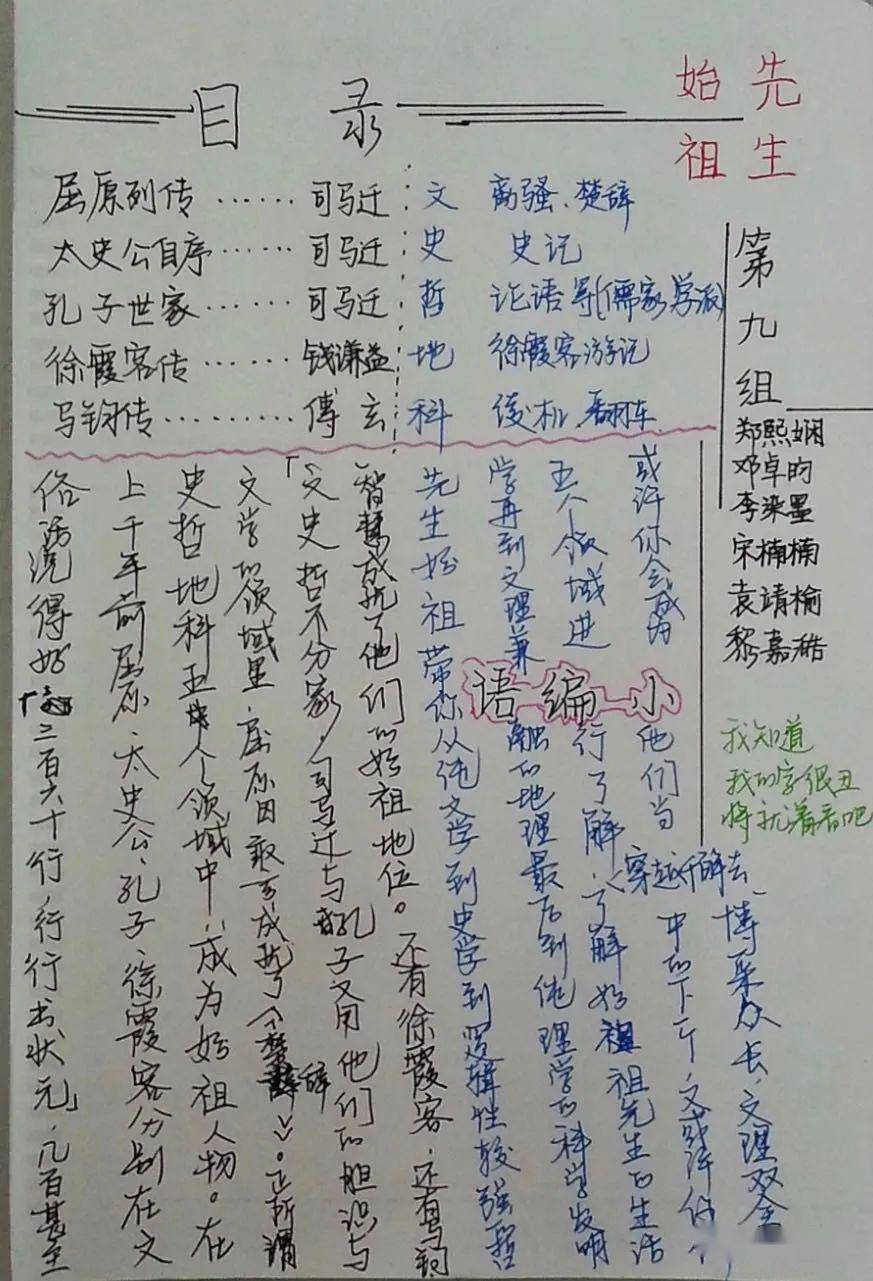 目录
始先
祖生
屈原列传……司马迁 文 离骚、楚辞
太史公自序……司马迁 史 史记
孔子世家……司马迁 哲 论语等(儒家学派)
徐霞客传……钱谦益 地 徐霞客游记
马钧传……傅玄 科 绫机、翻车
第九组
郑熙娴
邓卓昀
李染墨
宋楠楠
袁靖榆
黎嘉
我知道
我的字很丑
将就着看吧
小编语
俗话说得好「三百六十行,行行出状元」,几百甚至
上千年前屈原、太史公、孔子、徐霞客分别在文
史哲地科五个领域中,成为始祖人物。在
文学的领域里,屈原因敢言成就了《楚辞》。正所谓
「文史哲不分家」司马迁与孔子又用他们的胆识与
智慧成就了他们的始祖地位。还有徐霞客,还有马钧
先生始祖带你从纯文学到史学到逻辑性较强哲
学再到文理兼触的地理最后到纯理学的科学发明
五个领域进行了解,了解始祖先生的生活
或许你会成为他们当中的下一个,又或许你
穿越千年去
博采众长,文理双全